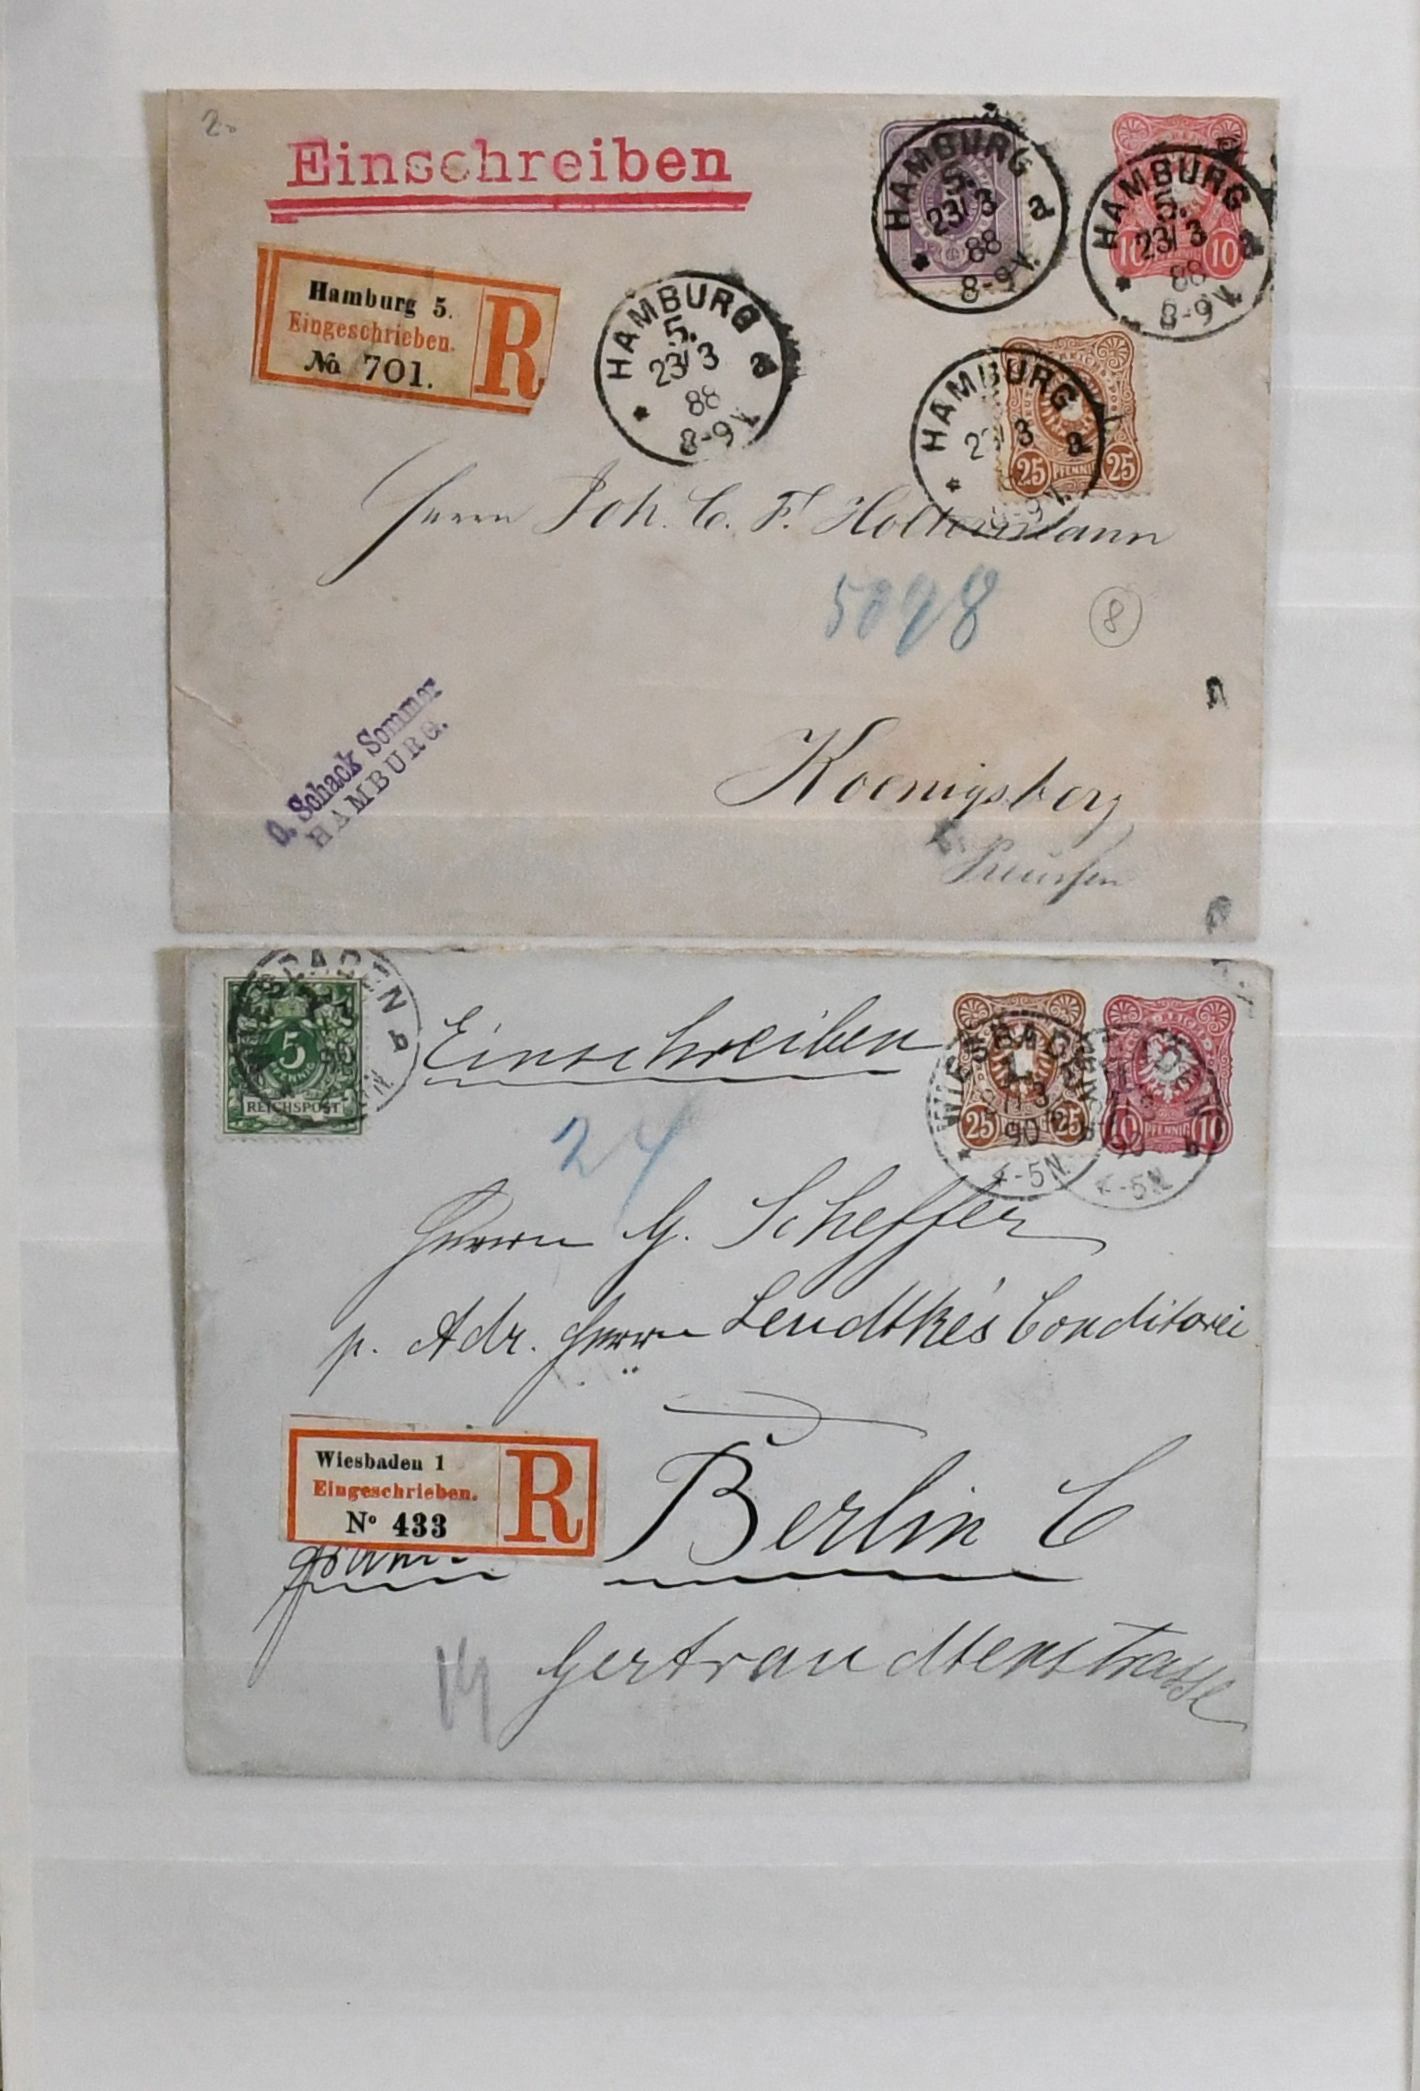 2.
Einschreiben
Hamburg 5.
Eingeschrieben.
No 701.
R
HAMBURG
5.
23/3
88
8-9V.
a
HAMBURG
5.
23/3
88
8-9V.
a
10 10
HAMBURG
5.
23/3
88
8-9V.
a
HAMBURG
3
8-9V.
a
25 PFENNIG 25
Herrn Joh. C. F. Holtermann
5098
8
O. Schack Sommer
HAMBURG.
Koenigsberg
Preußen
WIESBADEN
90
5
PFENNIG
REICHSPOST
Einschreiben
WIESBADEN
3
90
4-5N
25 25
90
4-5N
b
10 PFENNIG 10
24
Herrn G. Scheffer
p. Adr. Herrn Lendtke's Conditorei
Wiesbaden 1
Eingeschrieben.
No 433
R
Berlin C
Gertraudtenstrasse